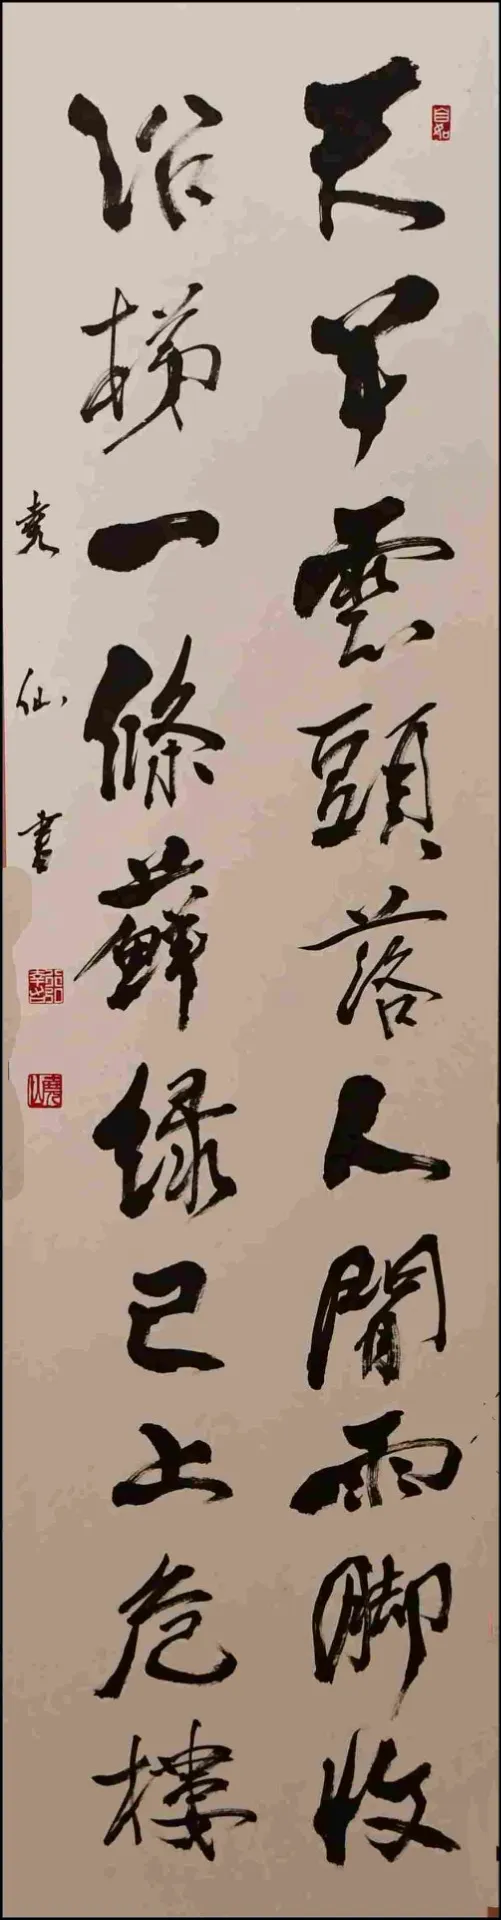 自如
天半雲頭落人閒雨脚收
沿梯一條蘚綠已上危樓
堯仙書